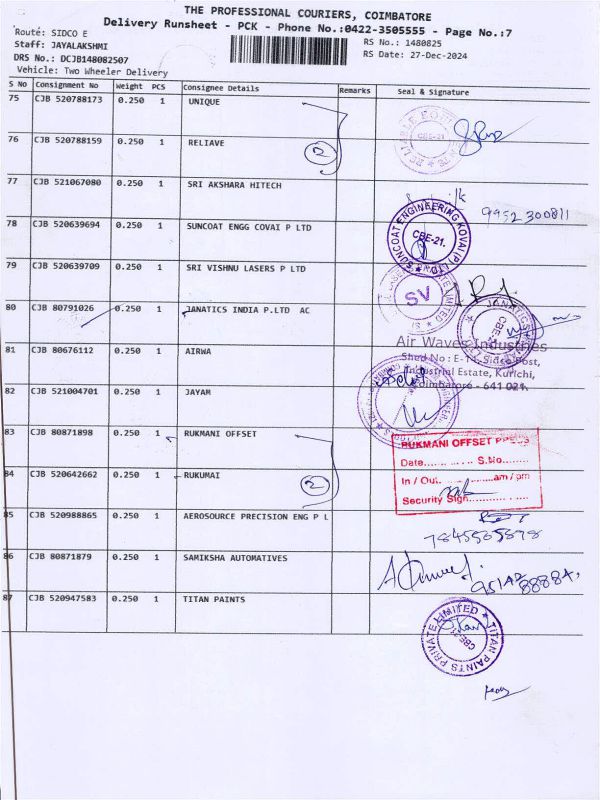 THE PROFESSIONAL COURIERS, COIMBATORE
Delivery Runsheet - PCK - Phone No.:0422-3505555 - Page No.:7
Route: SIDCO E
Staff: JAYALAKSHMI
DRS No.: DCJB148082507
Vehicle: Two Wheeler Delivery
RS No.: 1480825
RS Date: 27-Dec-2024
S No Consignment No Weight PCS Consignee Details Remarks Seal & Signature
75 CJB 520788173 0.250 1 UNIQUE
CBE-21
76 CJB 520788159 0.250 1 RELIAVE
2
77 CJB 521067080 0.250 1 SRI AKSHARA HITECH
9952300811
78 CJB 520639694 0.250 1 SUNCOAT ENGG COVAI P LTD
SUNCOAT ENGINEERING KOVAI P LTD
CBE-21.
79 CJB 520639709 0.250 1 SRI VISHNU LASERS P LTD
SV
80 CJB 80791026 0.250 1 JANATICS INDIA P.LTD AC
JANATICS
CBE-
81 CJB 80676112 0.250 1 AIRWA
Air Waves Industries
Shed No : E-14, Sidco Post,
Industrial Estate, Kurichi,
Coimbatore - 641 021.
82 CJB 521004701 0.250 1 JAYAM
83 CJB 80871898 0.250 1 RUKMANI OFFSET
RUKMANI OFFSET PRESS
Date............ S.No.........
In / Out..............am / pm
Security Sign..............
84 CJB 520642662 0.250 1 RUKUMAI
2
85 CJB 520988865 0.250 1 AEROSOURCE PRECISION ENG P L
86 CJB 80871879 0.250 1 SAMIKSHA AUTOMATIVES
87 CJB 520947583 0.250 1 TITAN PAINTS
TITAN PAINTS PRIVATE LIMITED
CBE-21